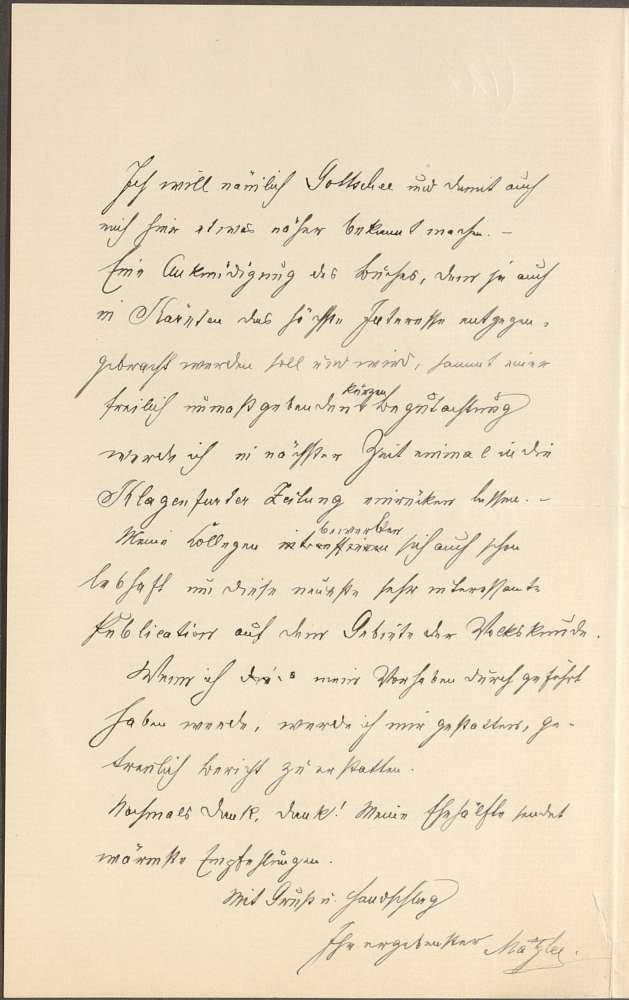 Ich will nämlich Gottschee und damit auch
mich hier etwas näher bekannt machen. –
Eine Ankündigung des Buches, dem ja auch
in Kärnten das höchste Interesse entgegen-
gebracht werden soll und wird, sammt einer
freilich unmaßgebenden kurzen Begutachtung
werde ich in nächster Zeit einmal in die
Klagenfurter Zeitung einrücken lassen. –
Meine Collegen bewerben sich auch schon
lebhaft um diese neueste sehr interessante
Publication auf dem Gebiete der Volkskunde.
Wenn ich mein Vorhaben durchgeführt
haben werde, werde ich mir gestatten, ge-
treulich Bericht zu erstatten.
Nochmals Dank, Dank! Meine Ehehälfte sendet
wärmste Empfehlungen.
Mit Gruß u. Handschlag
Ihr ergebenster